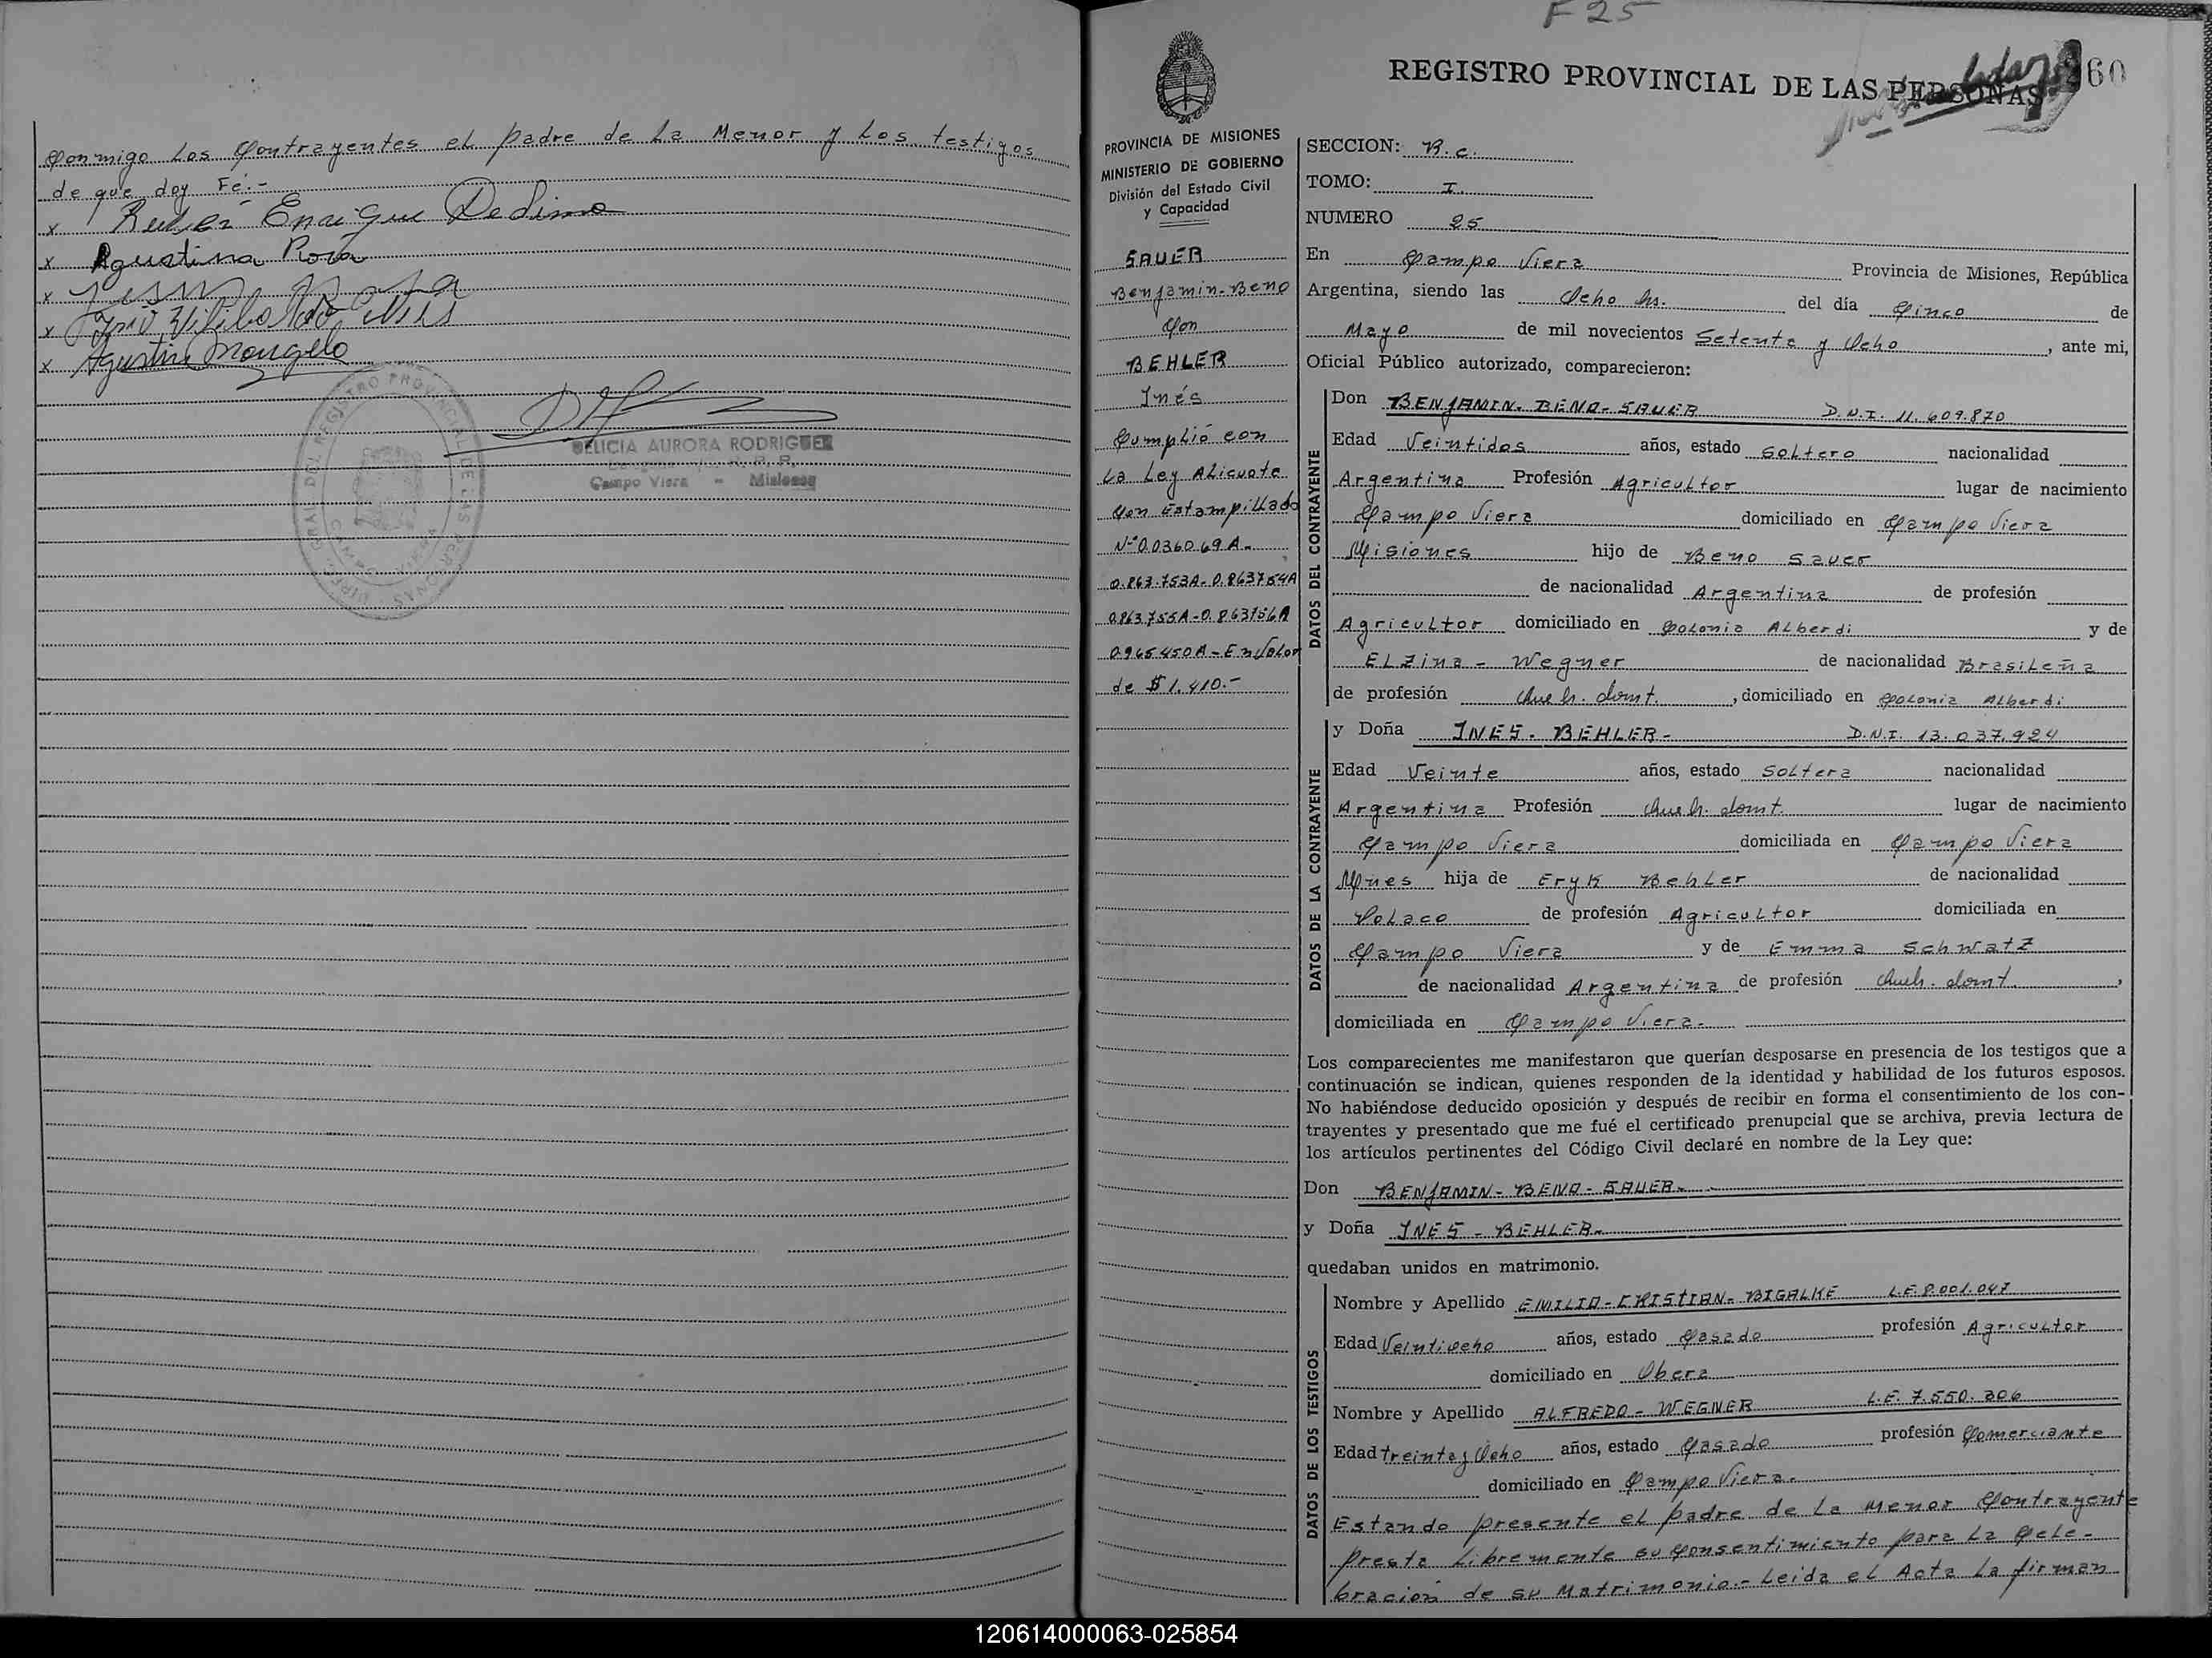 Conmigo Los Contrayentes el padre de La Menor y Los testigos
de que doy Fé.-
x Rubén Enrique Dedima
x Agustina Rosa
x
x José Vilibaldo
x Agustin Mongelo
DELICIA AURORA RODRIGUEZ
Campo Viera - Misiones
F 25
REGISTRO PROVINCIAL DE LAS PERSONAS
60
PROVINCIA DE MISIONES
MINISTERIO DE GOBIERNO
División del Estado Civil
y Capacidad
SAUER
Benjamin-Beno
Con
BEHLER
Inés
Cumplió con
La Ley Alicuota
Con Estampillado
Nº0.036069A-
0.863.753A-0.863754A
0.863.755A-0.863756A
0.965450A-En Valor
de $1.410.-
SECCION: R.c.
TOMO: I.
NUMERO 25
En Campo Viera Provincia de Misiones, República
Argentina, siendo las Ocho hs. del día Cinco de
Mayo de mil novecientos Setenta y Ocho, ante mi,
Oficial Público autorizado, comparecieron:
DATOS DEL CONTRAYENTE
Don BENJAMIN-BENO-SAUER D.N.I. 11.609.870
Edad Veintidos años, estado Soltero nacionalidad
Argentina Profesión Agricultor lugar de nacimiento
Campo Viera domiciliado en Campo Viera
Misiones hijo de Beno Sauer
de nacionalidad Argentina de profesión
Agricultor domiciliado en Colonia Alberdi y de
Elzina - Wegner de nacionalidad Brasileña
de profesión Queh. domt., domiciliado en Colonia Alberdi
DATOS DE LA CONTRAYENTE
y Doña INES-BEHLER- D.N.I. 13.037.924
Edad Veinte años, estado Soltera nacionalidad
Argentina Profesión Queh. domt. lugar de nacimiento
Campo Viera domiciliada en Campo Viera
Mnes hija de Eryk Behler de nacionalidad
Polaco de profesión Agricultor domiciliada en
Campo Viera y de Emma Schwatz
de nacionalidad Argentina de profesión Queh. domt.,
domiciliada en Campo Viera.-
Los comparecientes me manifestaron que querían desposarse en presencia de los testigos que a
continuación se indican, quienes responden de la identidad y habilidad de los futuros esposos.
No habiéndose deducido oposición y después de recibir en forma el consentimiento de los con-
trayentes y presentado que me fué el certificado prenupcial que se archiva, previa lectura de
los artículos pertinentes del Código Civil declaré en nombre de la Ley que:
Don BENJAMIN-BENO-SAUER-
y Doña INES-BEHLER-
quedaban unidos en matrimonio.
DATOS DE LOS TESTIGOS
Nombre y Apellido EMILIO-CRISTIAN-BIGALKE L.E.8.001.047
Edad Veintiocho años, estado Casado profesión Agricultor
domiciliado en Obera
Nombre y Apellido ALFREDO-WEGNER L.E. 7.550.306
Edad treinta y Ocho años, estado Casado profesión Comerciante
domiciliado en Campo Viera.
Estando presente el padre de La menor Contrayente
presta Libremente su Consentimiento para La Cele-
bración de su Matrimonio.- Leida el Acta La firman
120614000063-025854